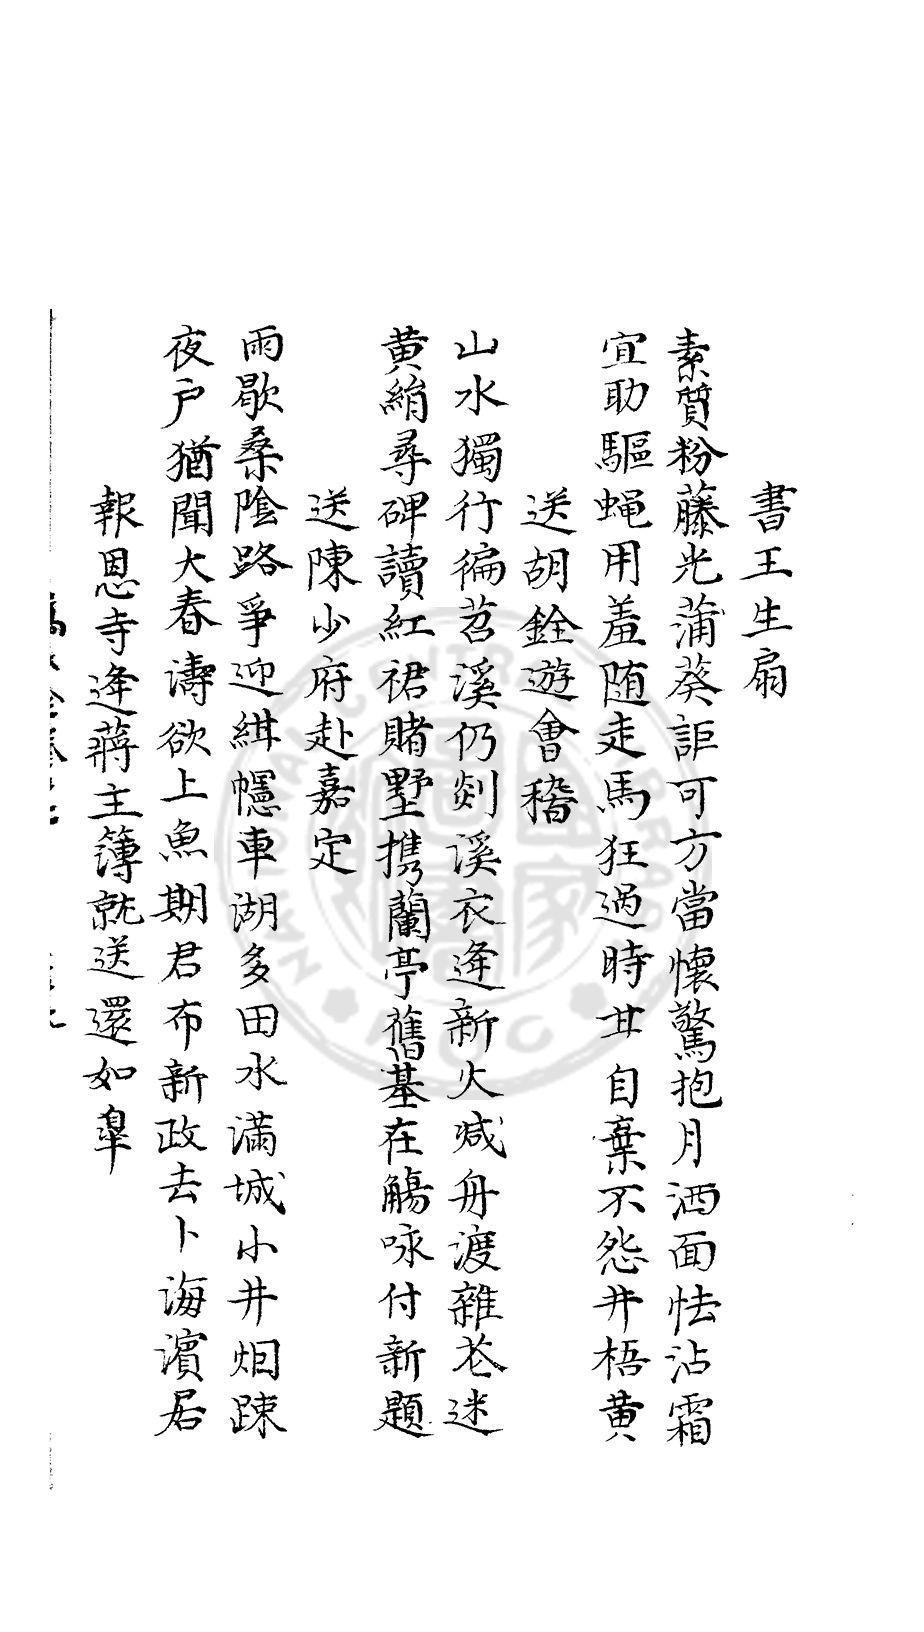 書王生扇
素質粉藤光蒲葵詎可方當懷驚抱月洒面怯沾霜
宜助驅蝇用羞随走馬狂過時甘自棄不怨井梧黄
送胡銓遊會稽
山水獨行徧苕溪仍剡溪衣逢新火減舟渡雜花迷
黄絹尋碑讀紅裙賭墅携蘭亭舊基在觴咏付新題
送陳少府赴嘉定
雨歇桑陰路爭迎緋幰車湖多田水滿城小井烟踈
夜户猶聞犬春濤欲上魚期君布新政去卜海濱居
報恩寺逢蔣主簿就送還如皐